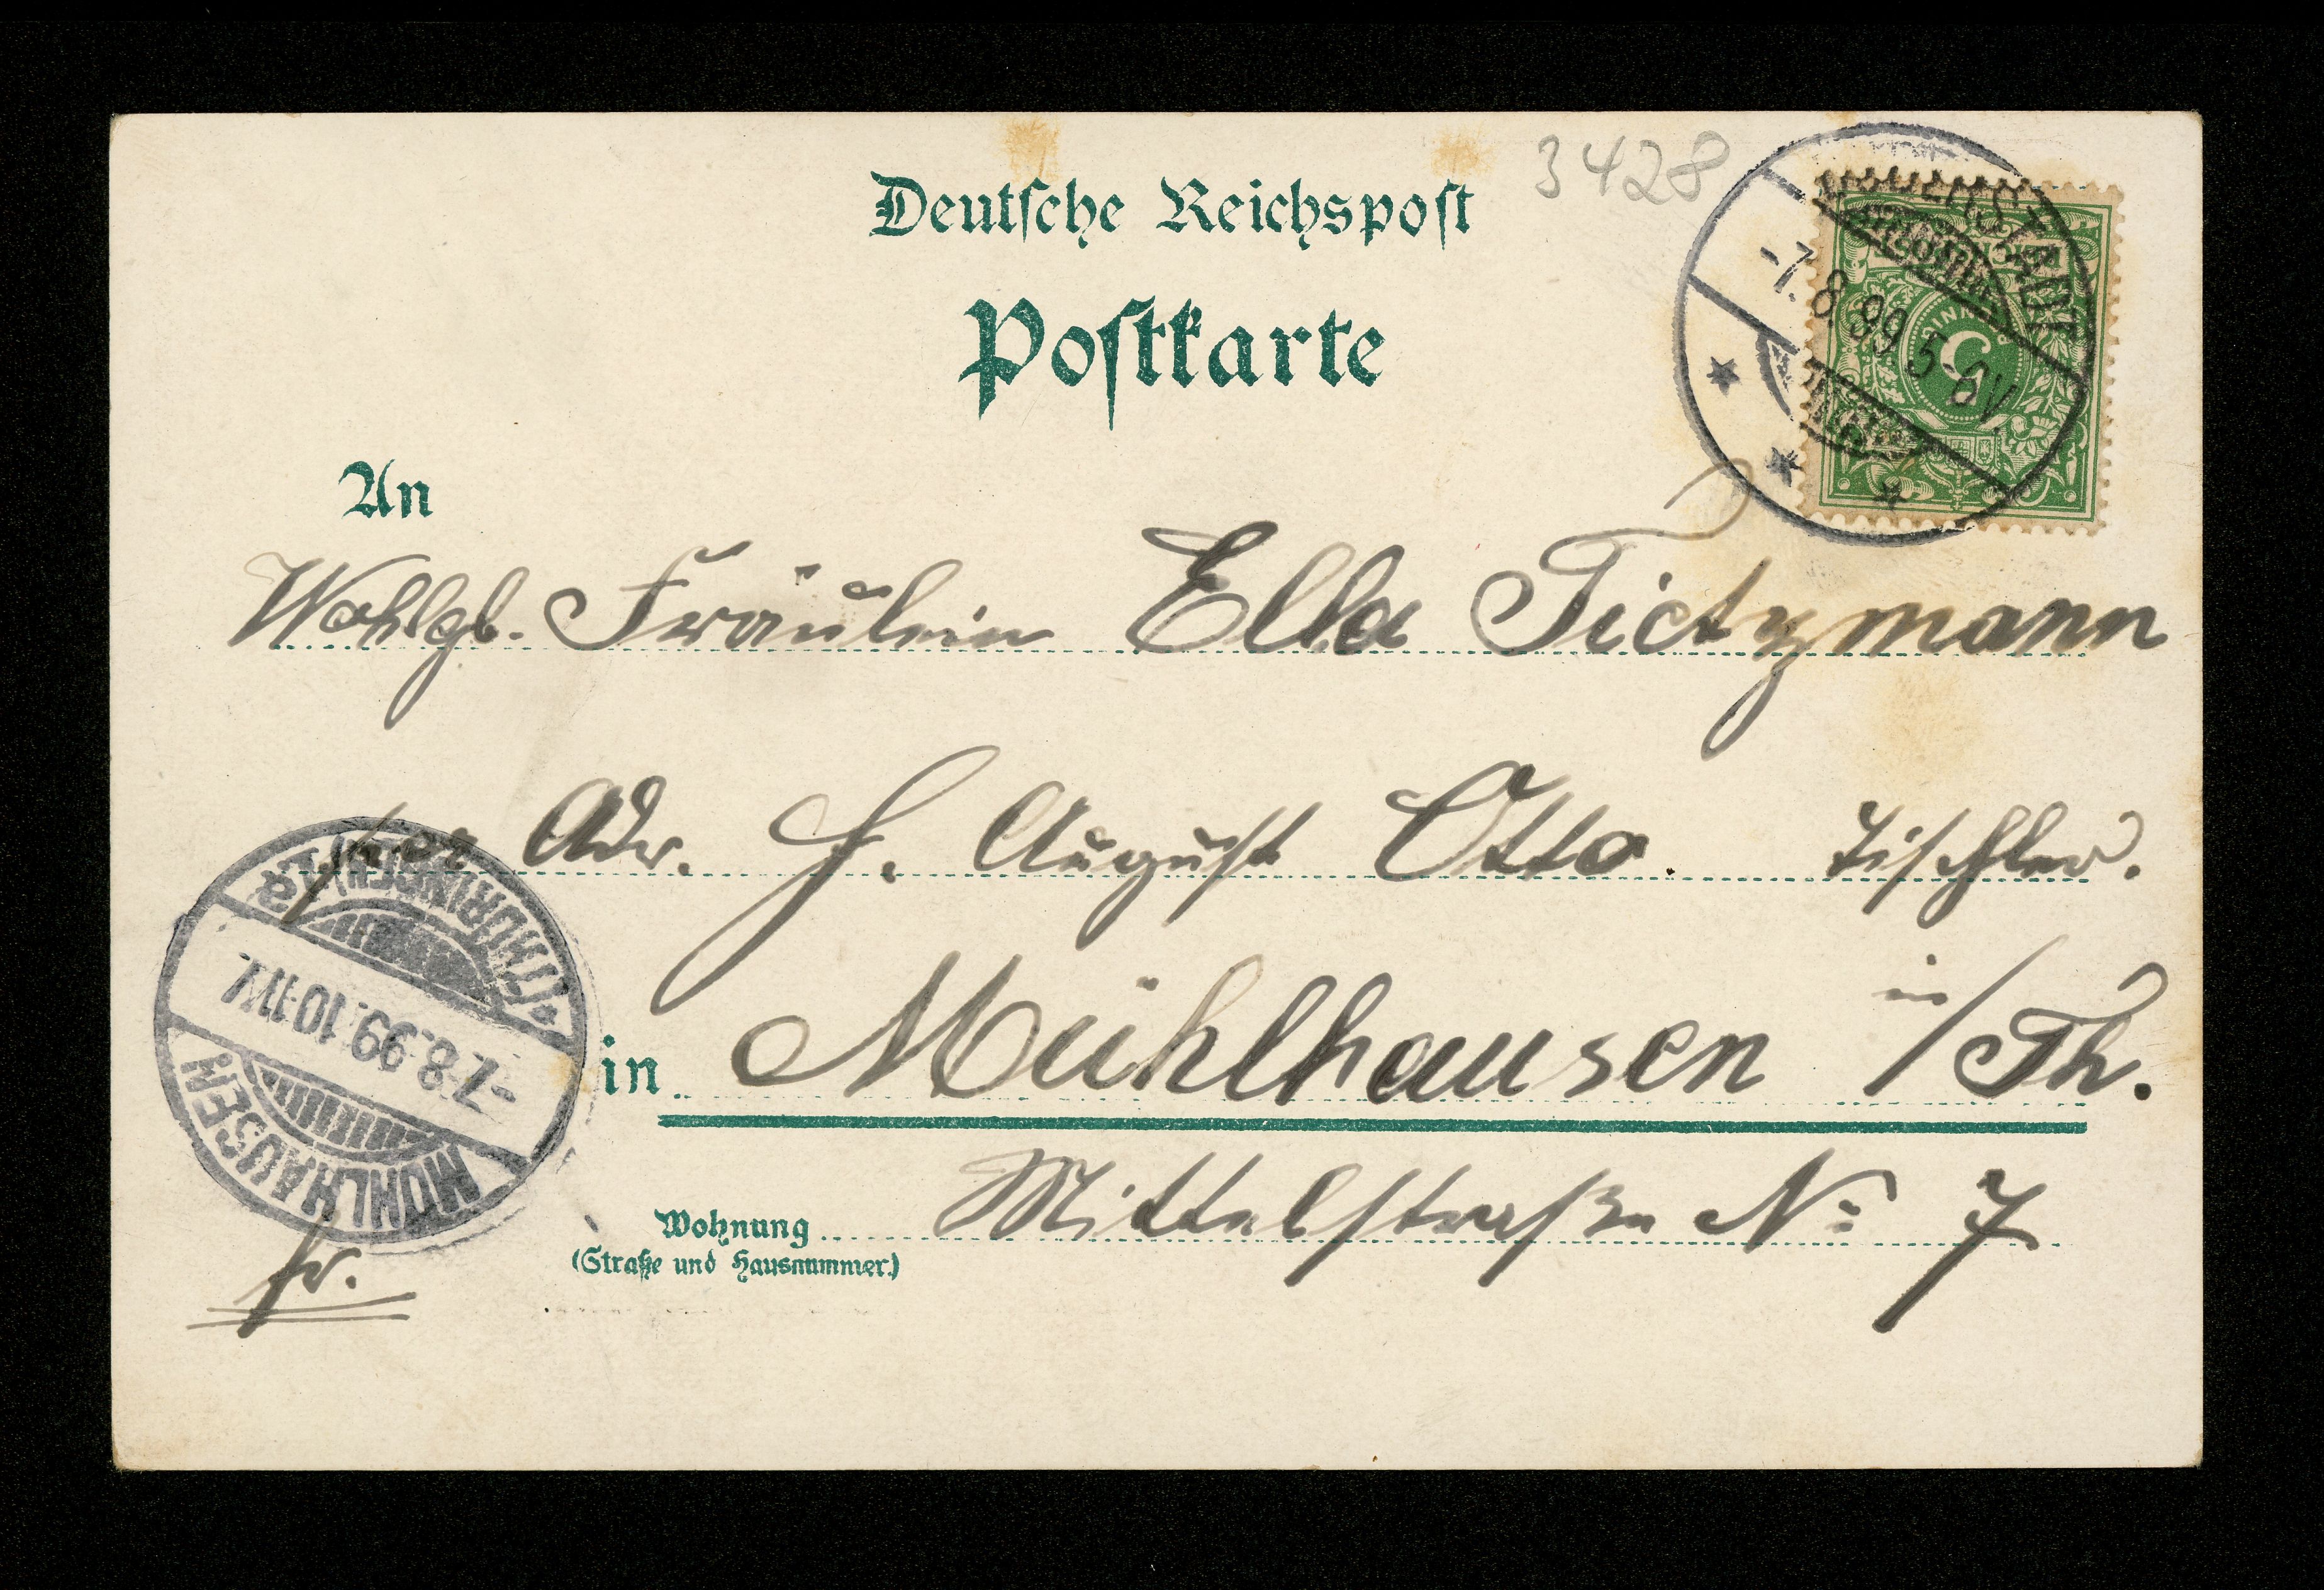 3428
Deutsche Reichspost
Postkarte
-7.8.99.5-6V
An
Wohlgb. Fräulein Ella Tietzmann
per Adr. H. August Otto. Tischler.
in Mühlhausen in/Th.
Wohnung Mittelstraße No 7
(Straße und Hausnummer.)
fr.
MÜHLHAUSEN
-7.8.99.10-11V.
(THÜRINGEN)